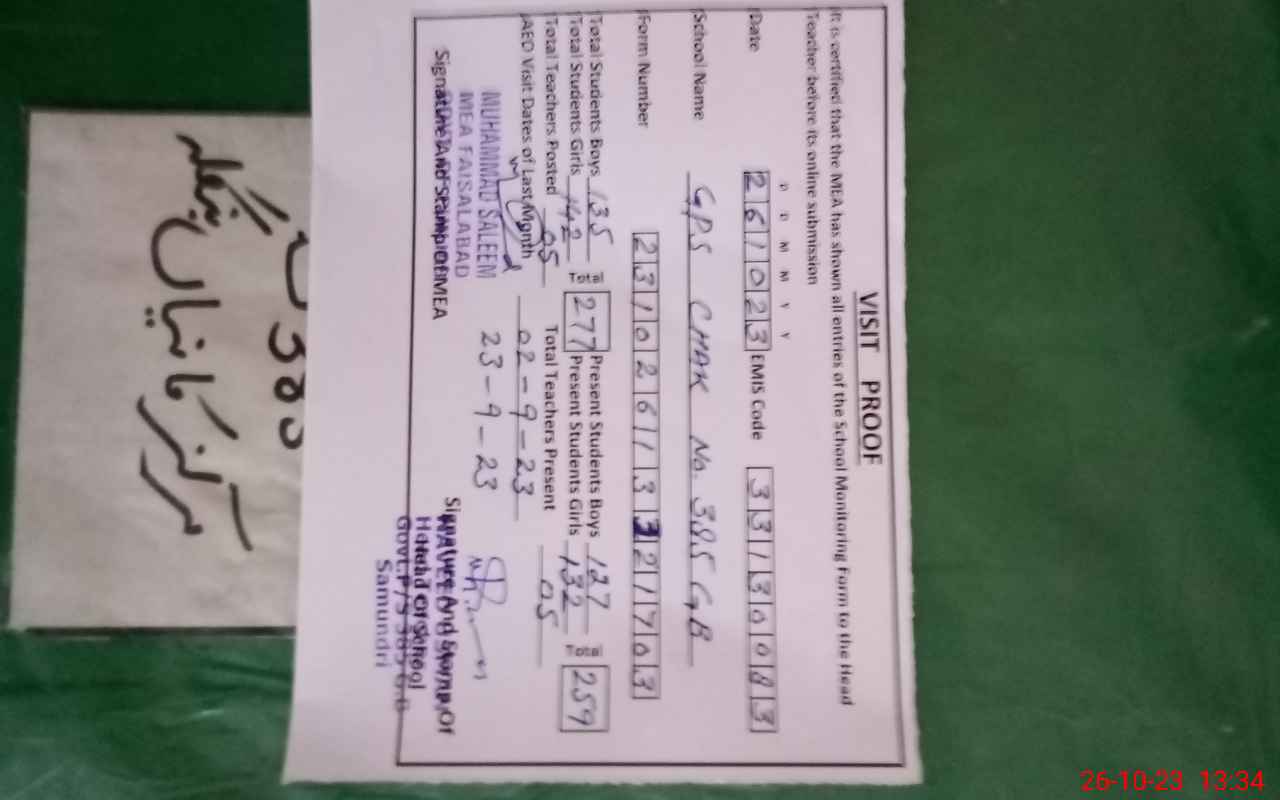 VISIT PROOF
It is certified that the MEA has shown all entries of the School Monitoring Form to the Head
Teacher before its online submission
D D M M Y Y
Date 261023 EMIS Code 33130083
School Name GPS CHAK No. 385 GB
Form Number
Total Students Boys 135 Total 277 Present Students Boys 127 Total 259
Total Students Girls 142 Present Students Girls 132
Total Teachers Posted 05 Total Teachers Present 05
AEO Visit Dates of Last Month 02-9-23
23-9-23
MUHAMMAD SALEEM
MEA FAISALABAD
Signature And Stamp Of MEA
Signature And Stamp Of
Head of School
Govt. P/S 385 G.B
Samundri
385
مرکز کانیاں بنگلہ
26-10-23 13:34